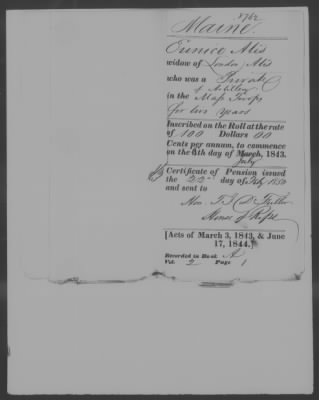 8762
Maine.
Eunice
widow of London
who was a Private
of Artillery
in the Mass Troops
for two years
Inscribed on the Roll at the rate
of 100 Dollars 00
Cents per annum, to commence
on the 4th day of March, 1843.
July
Certificate of Pension issued
the 22nd day of July 1850
and sent to
Hon. T. J. D. Fuller
House of Reps.
[Acts of March 3, 1843, & June
17, 1844.]
Recorded in Book A
Vol. 2 Page 1